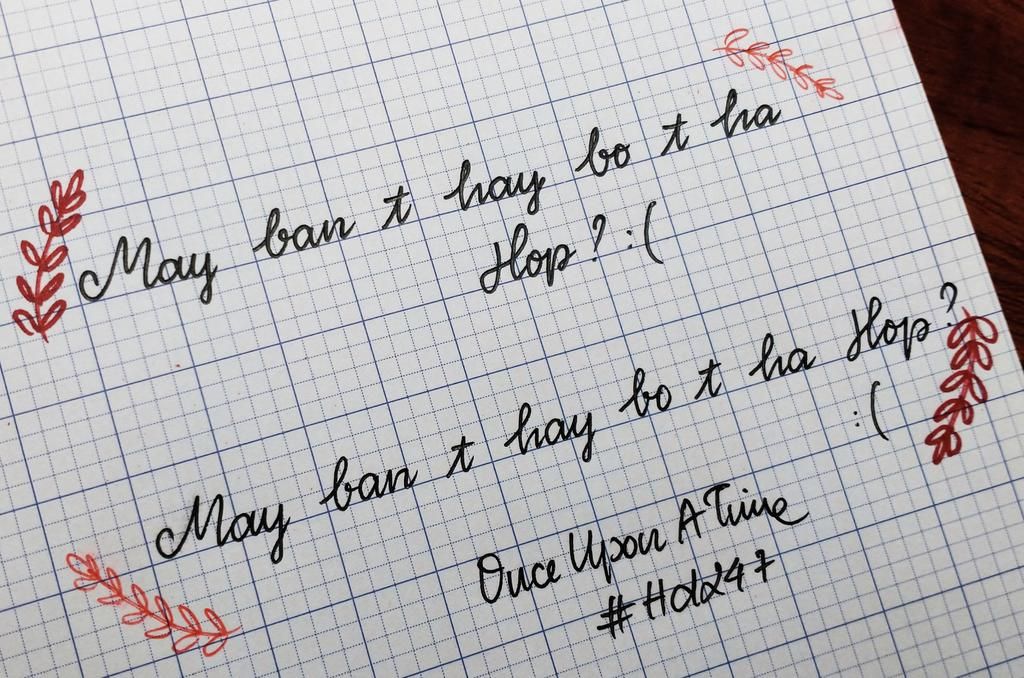 May ban t hay bo t ha
Hop? :(
May ban t hay bo t ha Hop?
:(
Once Upon A Time
#Hdd247